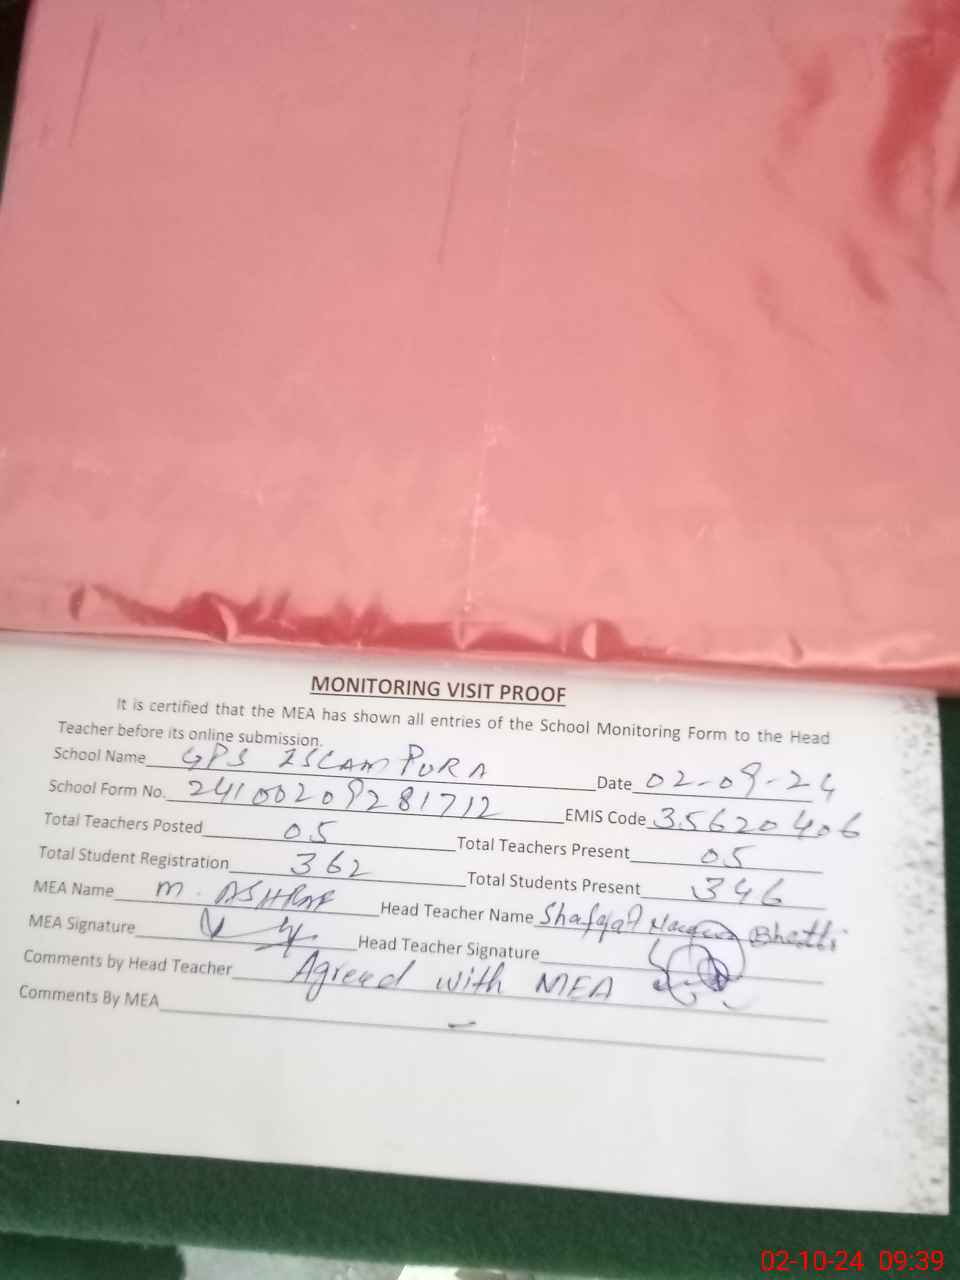 MONITORING VISIT PROOF
It is certified that the MEA has shown all entries of the School Monitoring Form to the Head
Teacher before its online submission.
School Name GPS ISLAM PURA Date 02-09-24
School Form No. 24100209281712 EMIS Code 35620406
Total Teachers Posted 05 Total Teachers Present 05
Total Student Registration 362 Total Students Present 346
MEA Name M. ASHRAF Head Teacher Name Shafqat Bhatti
MEA Signature Head Teacher Signature
Comments by Head Teacher Agreed with MEA
Comments By MEA -
02-10-24 09:39